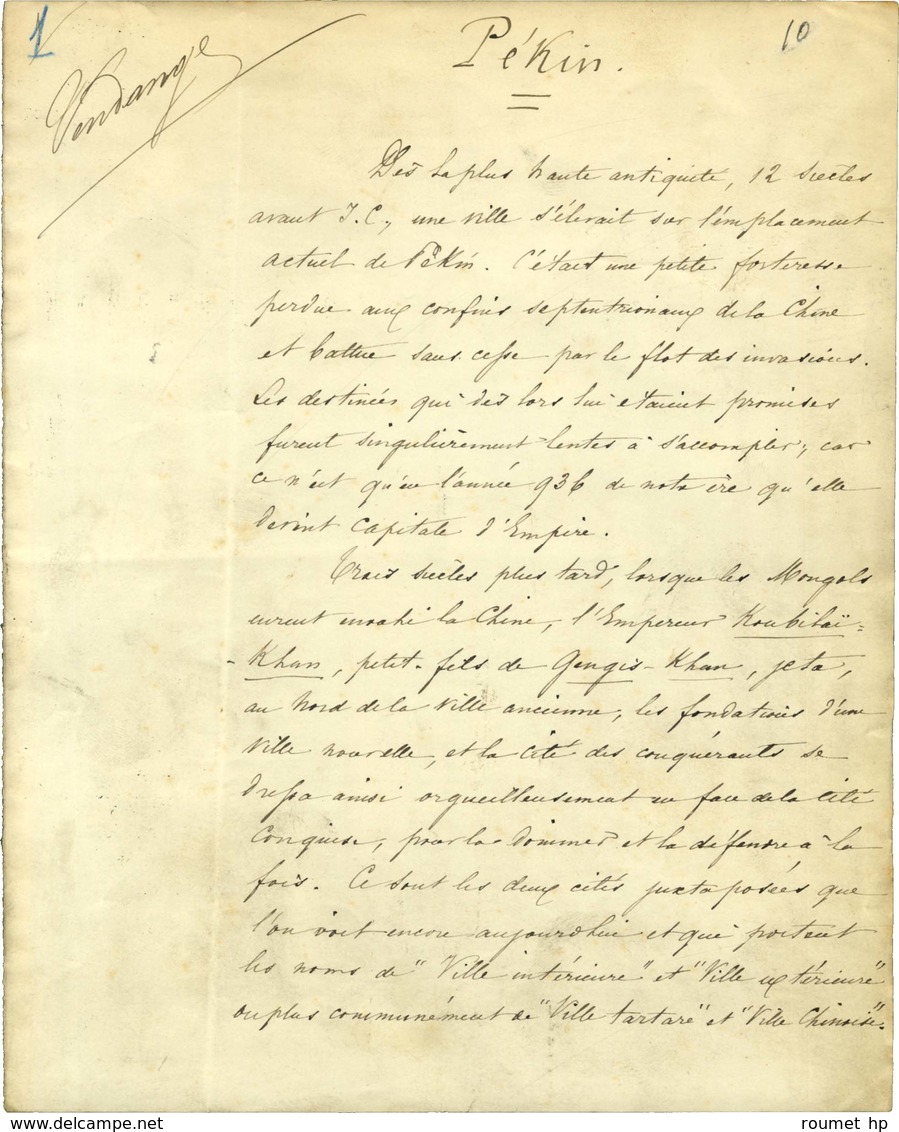 1
10
Vendange
Pékin.
Dès la plus haute antiquité, 12 siècles
avant J.C., une ville s'élevait sur l'emplacement
actuel de Pékin. C'était une petite forteresse
perdue aux confins septentrionaux de la Chine
et battue sans cesse par le flot des invasions.
Les destinées qui dès lors lui étaient promises
furent singulièrement lentes à s'accomplir; car
ce n'est qu'en l'année 936 de notre ère qu'elle
devint capitale d'Empire.
Trois siècles plus tard, lorsque les Mongols
eurent envahi la Chine, l'Empereur Koubilaï-
-Khan, petit-fils de Gengis-Khan, jeta,
au Nord de la ville ancienne, les fondations d'une
ville nouvelle, et la cité des conquérants se
dressa ainsi orgueilleusement en face de la cité
conquise, pour la dominer et la défendre à la
fois. Ce sont les deux cités juxtaposées que
l'on voit encore aujourd'hui et qui portent
les noms de "Ville intérieure" et "Ville extérieure"
ou plus communément de "Ville tartare" et "Ville Chinoise".
roumet hp